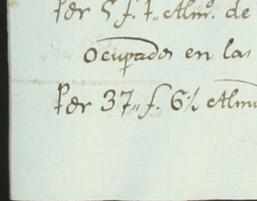 Per 5 f. 7. Alm.s de
ocupados en las
Per 37,, f. 6½ Alm